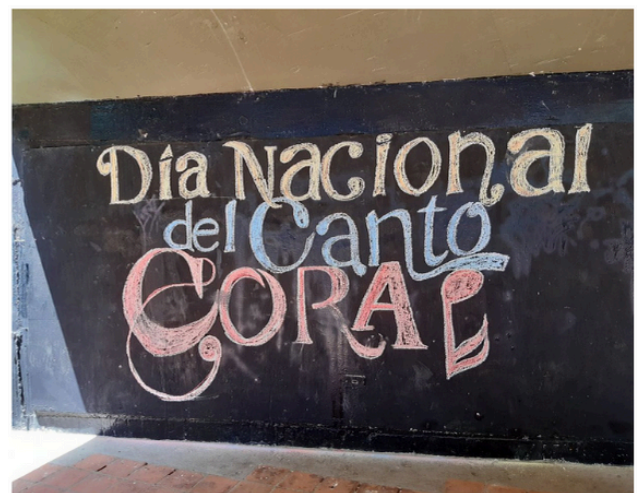 Día Nacional
del Canto
CORAL